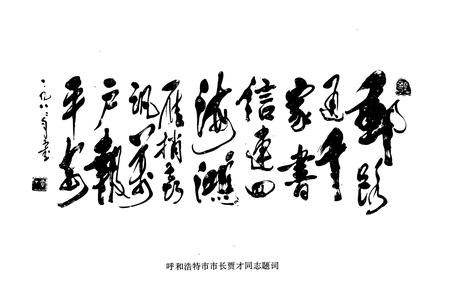 郵路
通千
家書
信連四
海鴻
雁捎喜
訊萬
户報
平安
一九八
呼和浩特市市长贾才同志题词